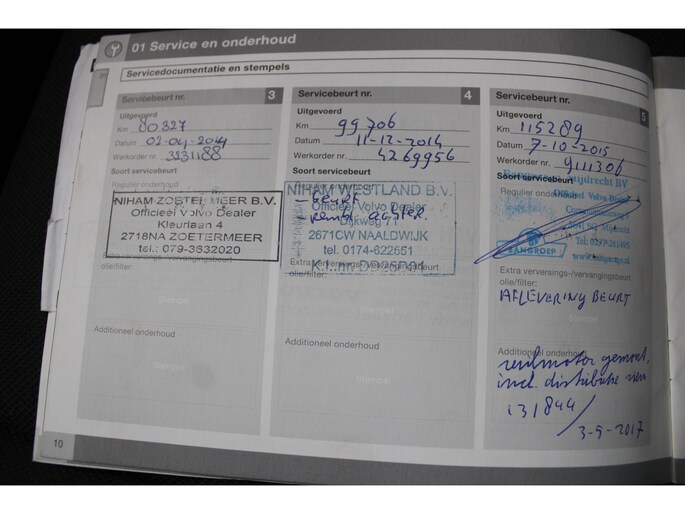 01 Service en onderhoud
Servicedocumentatie en stempels
Servicebeurt nr. 3
Uitgevoerd
Km 80327
Datum 02-04-2014
Werkorder nr. 3231188
Soort servicebeurt
Regulier onderhoud
NIHAM ZOETERMEER B.V.
Officieel Volvo Dealer
Kleurlaan 4
2718NA ZOETERMEER
tel.: 079-3632020
Extra verversings-/vervangingsbeurt
olie/filter:
Stempel
Additioneel onderhoud
Servicebeurt nr. 4
Uitgevoerd
Km 99706
Datum 11-12-2014
Werkorder nr. 4269956
Soort servicebeurt
NIHAM WESTLAND B.V.
- beurt
Officieel Volvo Dealer
- remb achter.
Dijkweg 71
2671CW NAALDWIJK
tel. 0174-622651
Extra verversings-/vervangingsbeurt
olie/filter:
Stempel
Additioneel onderhoud
Stempel
Servicebeurt nr. 5
Uitgevoerd
Km 115289
Datum 7-10-2015
Werkorder nr. 9111306
Soort servicebeurt
Regulier onderhoud
Officieel Volvo Dealer
Extra verversings-/vervangingsbeurt
olie/filter:
AFLEVERING BEURT
Additioneel onderhoud
ruilmotor gemont.
incl. distributie riem
131844
/ 3-9-2017
10